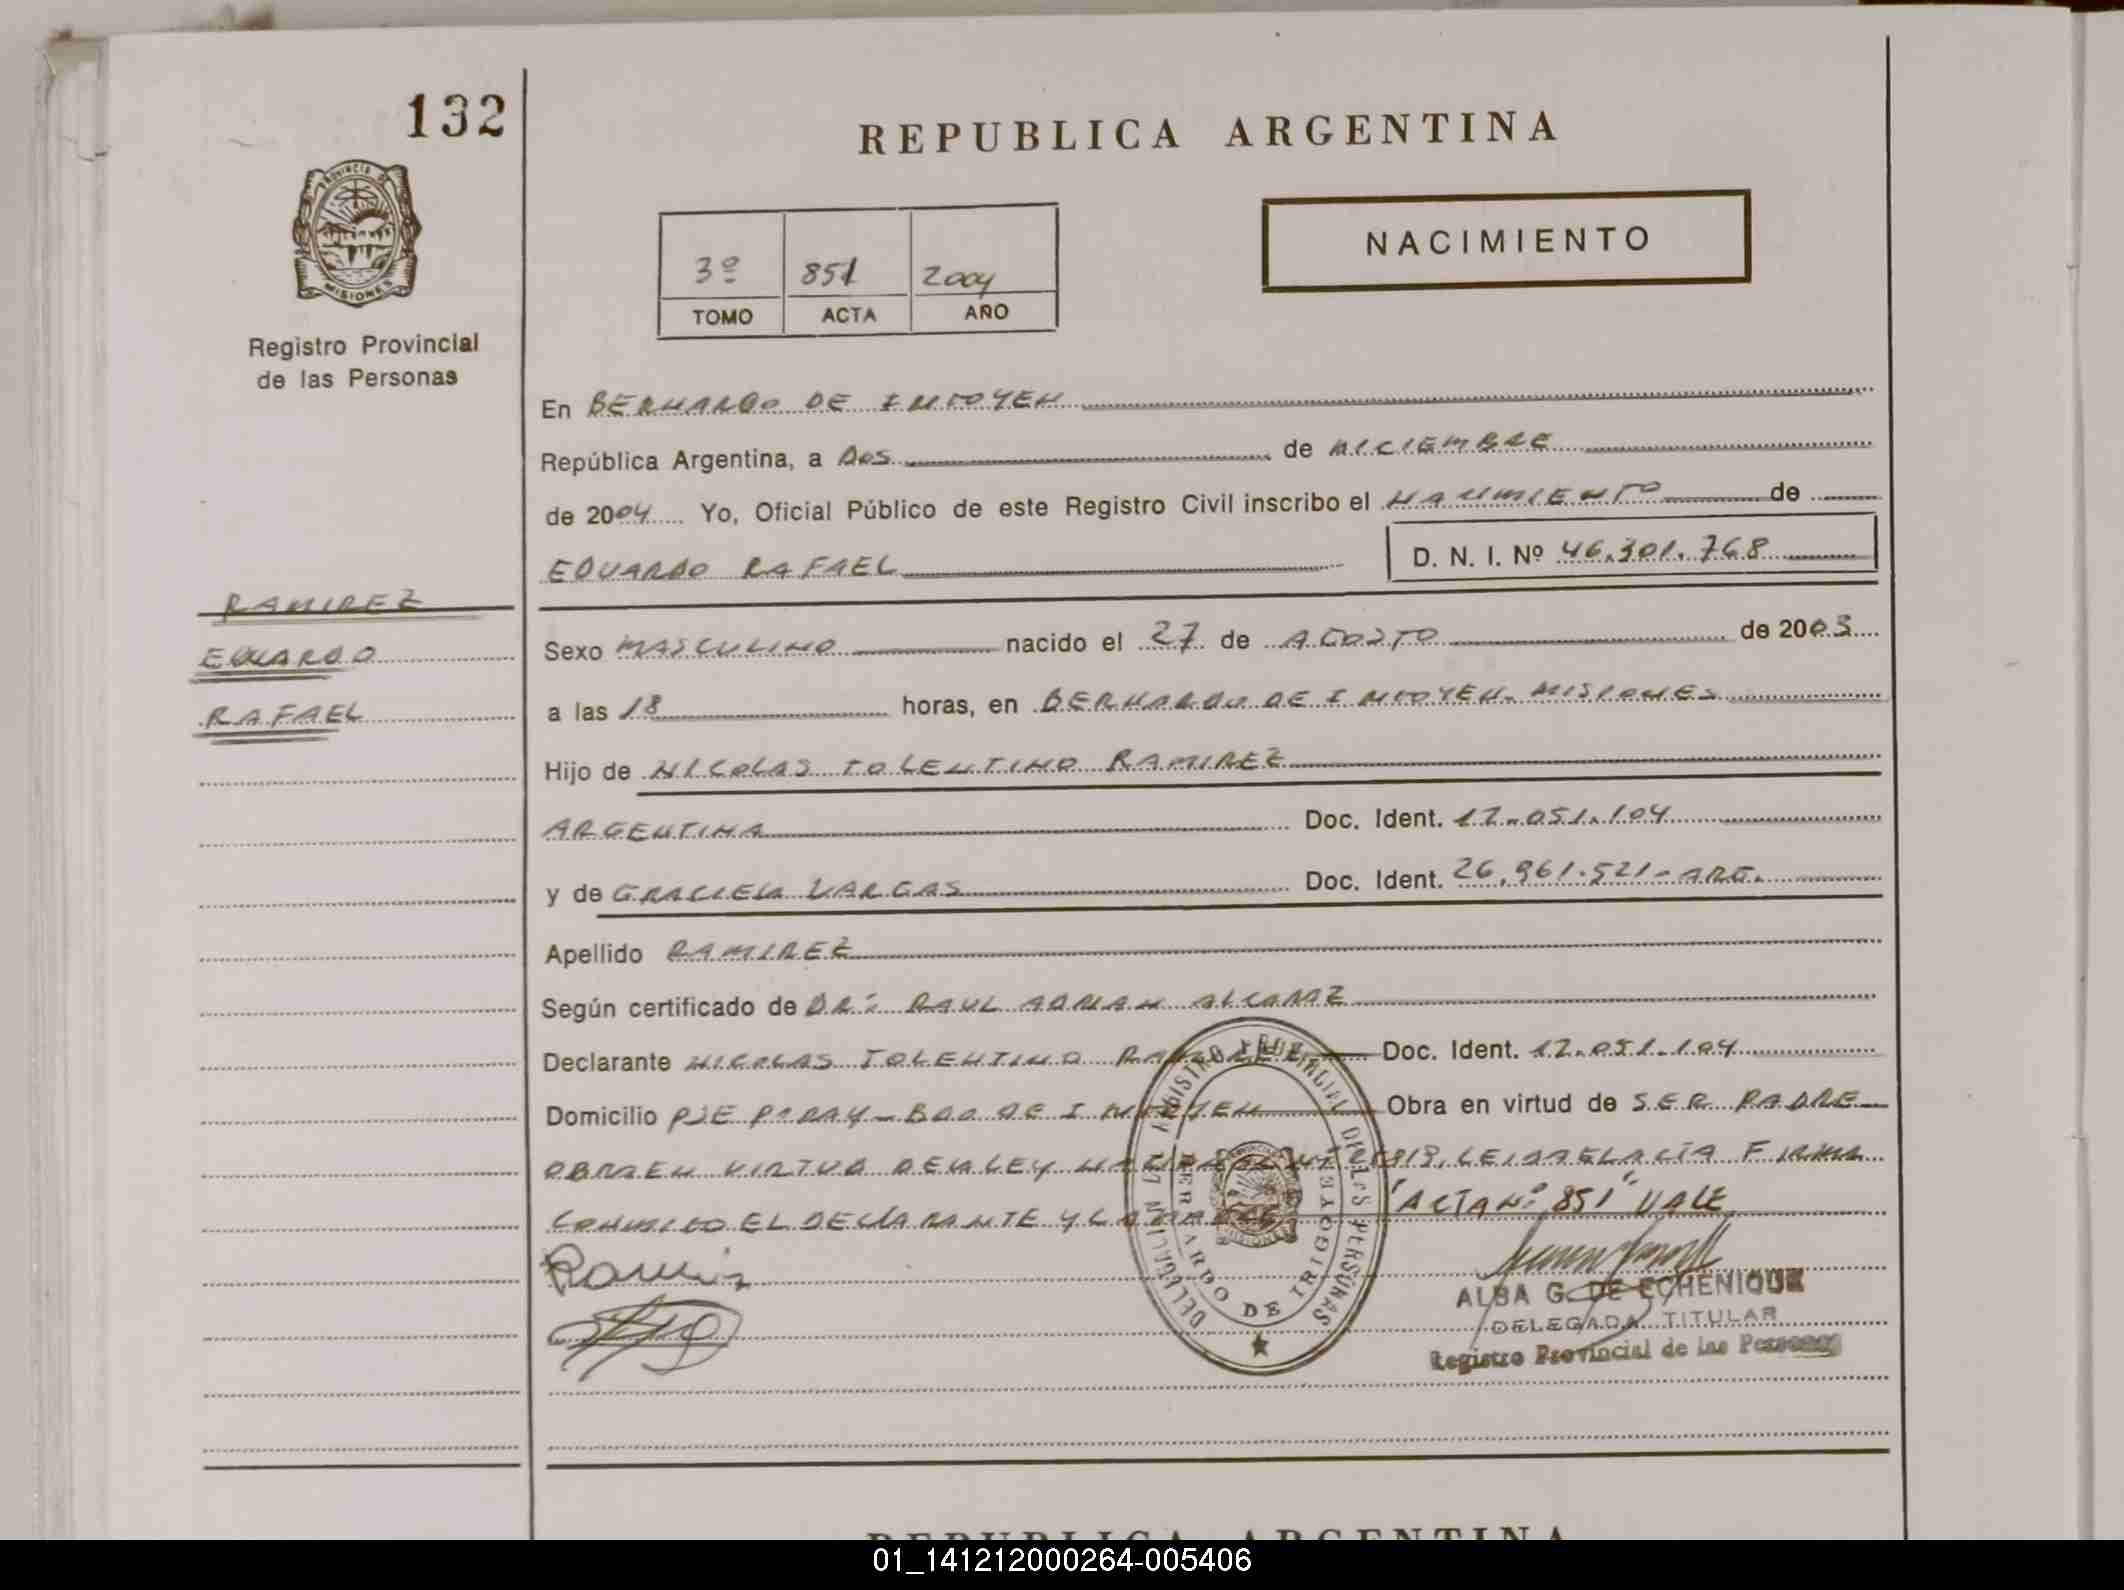 132
REPUBLICA ARGENTINA
PROVINCIA DE
MISIONES
Registro Provincial
de las Personas
NACIMIENTO
3º 851 2004
TOMO ACTA AÑO
En BERNARDO DE IRIGOYEN
República Argentina, a DOS de DICIEMBRE
de 2004 Yo, Oficial Público de este Registro Civil inscribo el NACIMIENTO de
EDUARDO RAFAEL D. N. I. Nº 46.301.768
RAMIREZ
EDUARDO
RAFAEL
Sexo MASCULINO nacido el 27 de AGOSTO de 2003
a las 18 horas, en BERNARDO DE IRIGOYEN - MISIONES
Hijo de NICOLAS TOLENTINO RAMIREZ
ARGENTINA Doc. Ident. 12.051.104
y de GRACIELA VARGAS Doc. Ident. 26.961.521 - ARG.
Apellido RAMIREZ
Según certificado de DR: RAUL ADRIAN ALCARAZ
Declarante NICOLAS TOLENTINO RAMIREZ Doc. Ident. 12.051.104
Domicilio PJE PIRAY - BDO DE IRIGOYEN Obra en virtud de SER PADRE
OBRA EN VIRTUD DE LA LEY NACIONAL Nº LEIDA EL ACTA FIRMA
CONMIGO EL DECLARANTE Y LA MADRE "ACTA Nº 851" VALE
Ramirez
DELEGACION REGISTRO PROVINCIAL DE LAS PERSONAS
BERNARDO DE IRIGOYEN
MISIONES
ALBA G. DE ECHENIQUE
DELEGADA TITULAR
Registro Provincial de las Personas
REPUBLICA ARGENTINA
01_141212000264-005406